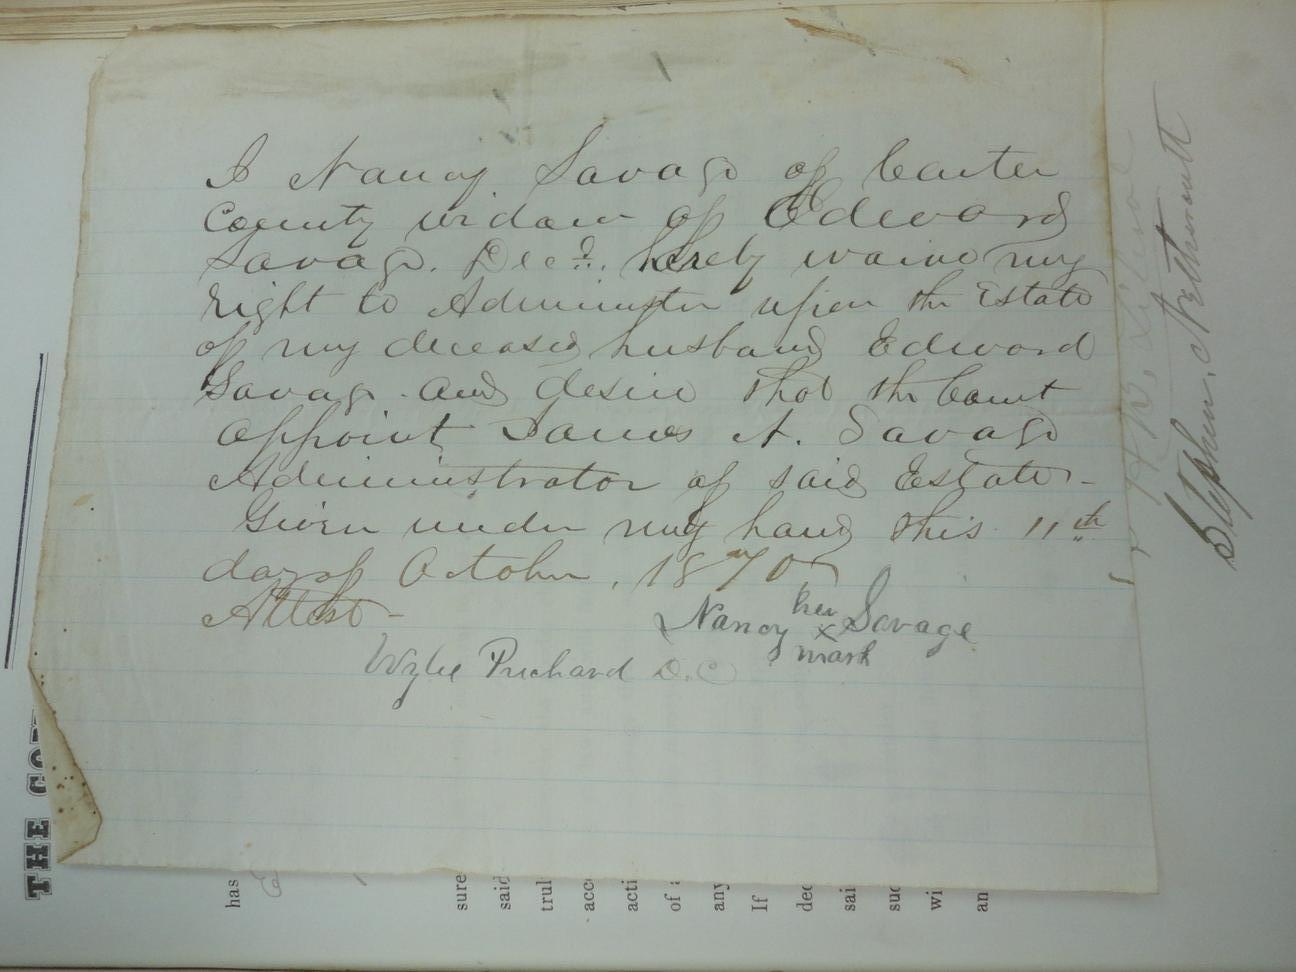 I Nancy Savage of Carter
County widow of Edward
Savage. Decd. hereby waive my
right to Administer upon the Estate
of my deceased husband Edward
Savage - and desire that the Court
appoint James A. Savage
Administrator of said Estate -
Given under my hand this 11th
day of October, 1870
Attest -
Nancy her x mark Savage
Wylie Prichard D.C
Stephen
THE CO
has
sure
said
trul
acc
acti
of
any
If
dec
sai
suc
wi
an